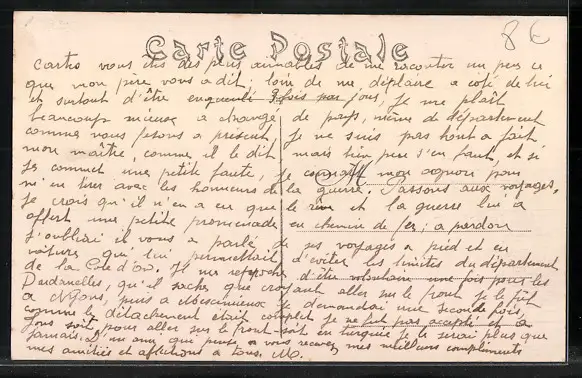 8€
Carte Postale
vous êtes des plus aimables de me raconter un peu ce
que mon père vous a dit; loin de me déplaire a coté de lui
et surtout d'être engueulé 3 fois par jour, je me plaît
beaucoup mieux a changé de pays, même de département
comme nous fesons a présent, je ne suis pas tout a fait
mon maître, comme il le dit mais bien peu s'en faut, et si
je commet une petite faute, je connaît mon pour
m'en tirer avec les honneurs de la guerre. aux voyages,
je crois qu'il n'en a eu que le rêve et la guerre lui a
offert une petite promenade en chemin de fer; a pardon
j'oubliai il vous a parlé de ses voyages a pied et en
voiture qui lui permettait d'éviter les limites du département
de la Côte d'or. Il me reproche d'être volontaire une fois pour les
Dardanelles, qu'il sache que croyant aller sur le front je le fut
a puis a je demandai une seconde fois,
comme le détachement était complet je ne fut pas accepté et a
soit pour aller sur le front soit en turquie je le serai plus que
jamais. D'un ami que pense a vous recevez mes meilleurs compliments
mes amitiés et affections a tous. M.